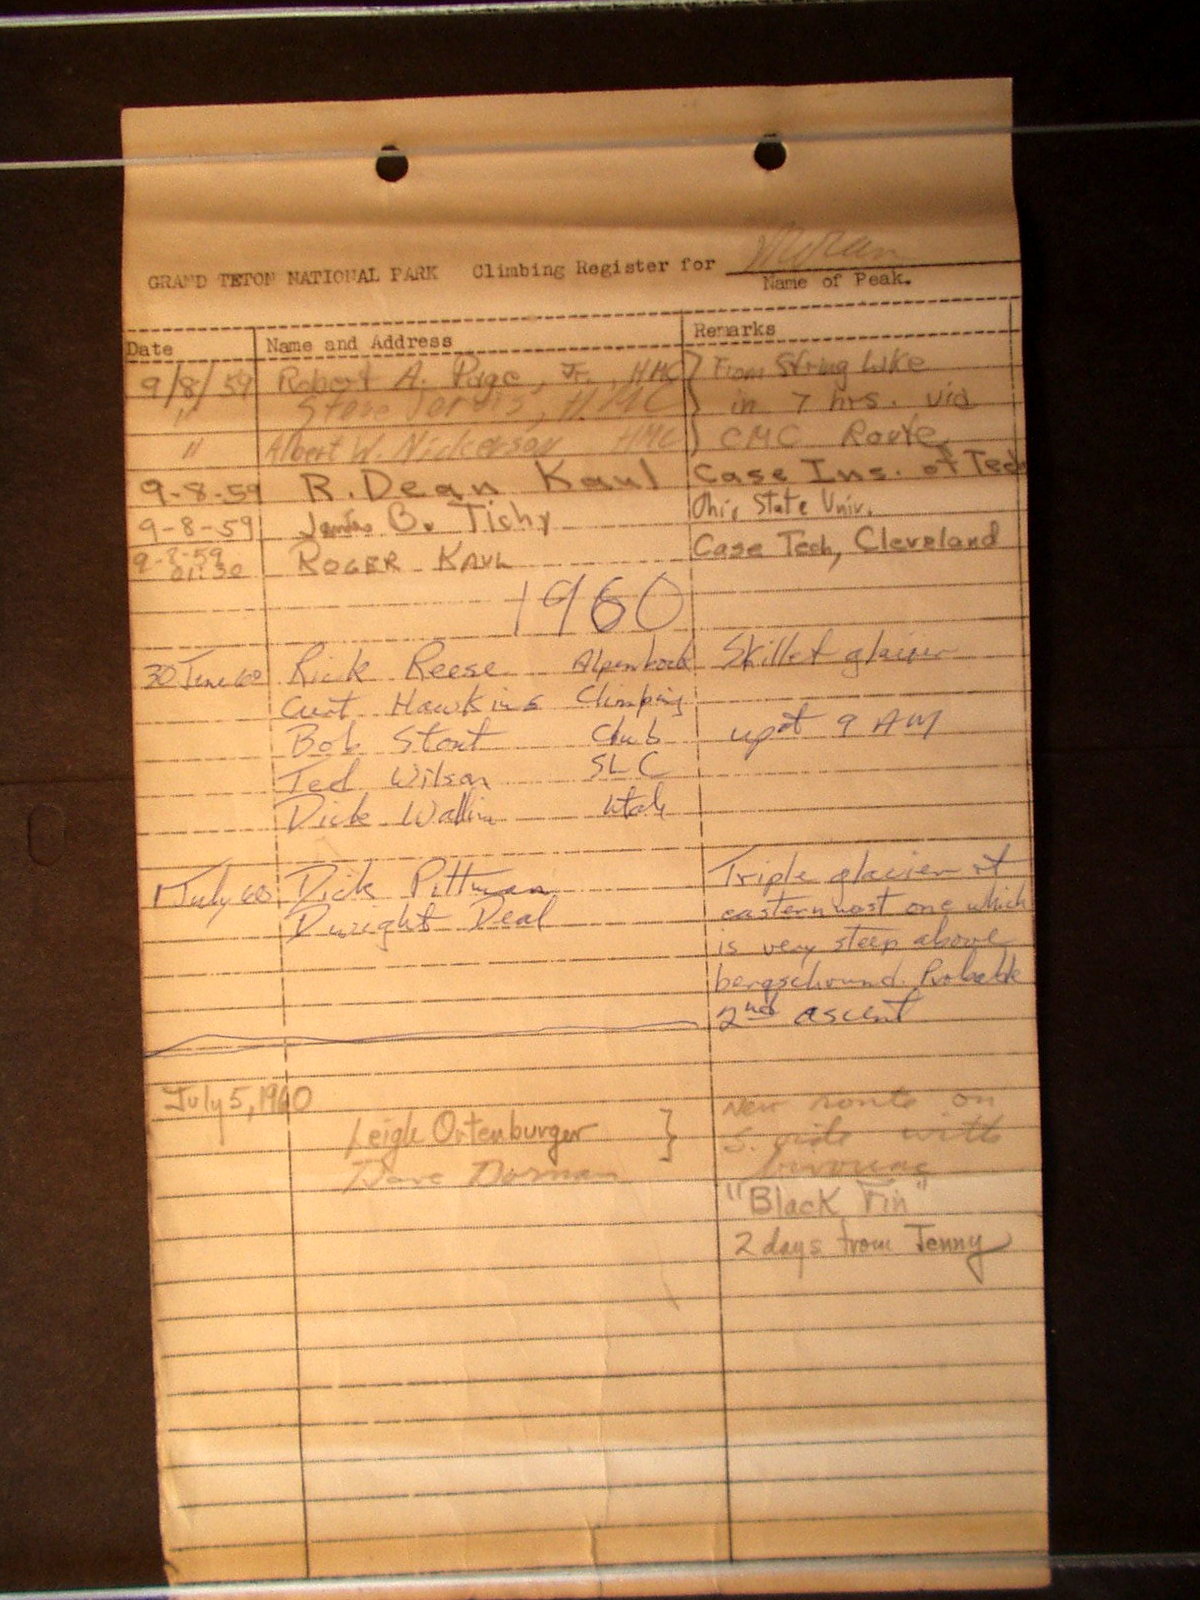 Moran
GRAND TETON NATIONAL PARK Climbing Register for
Name of Peak.
Date Name and Address Remarks
9/8/59 Robert A. Page, Jr., HMC } From String Lake
" Steve Jervis, HMC } in 7 hrs. via
" Albert W. Nickerson HMC } CMC Route
9-8-59 R. Dean Kaul Case Ins. of Tech
9-8-59 James B. Tichy Ohio State Univ.
9-8-59 ROGER KAUL Case Tech, Cleveland
01:30
1960
30 June 60 Rick Reese Alpenbock Skillet glacier
Curt Hawkins Climbing
Bob Stout Club up at 9 AM
Ted Wilson SLC
Dick Wallin Utah
1 July 60 Dick Pittman Triple glacier at
Dwight Deal easternmost one which
is very steep above
bergschrund. Probable
2nd ascent
July 5, 1960 New route on
Leigh Ortenburger } S. side with
Dave Dornan
"Black Fin"
2 days from Jenny